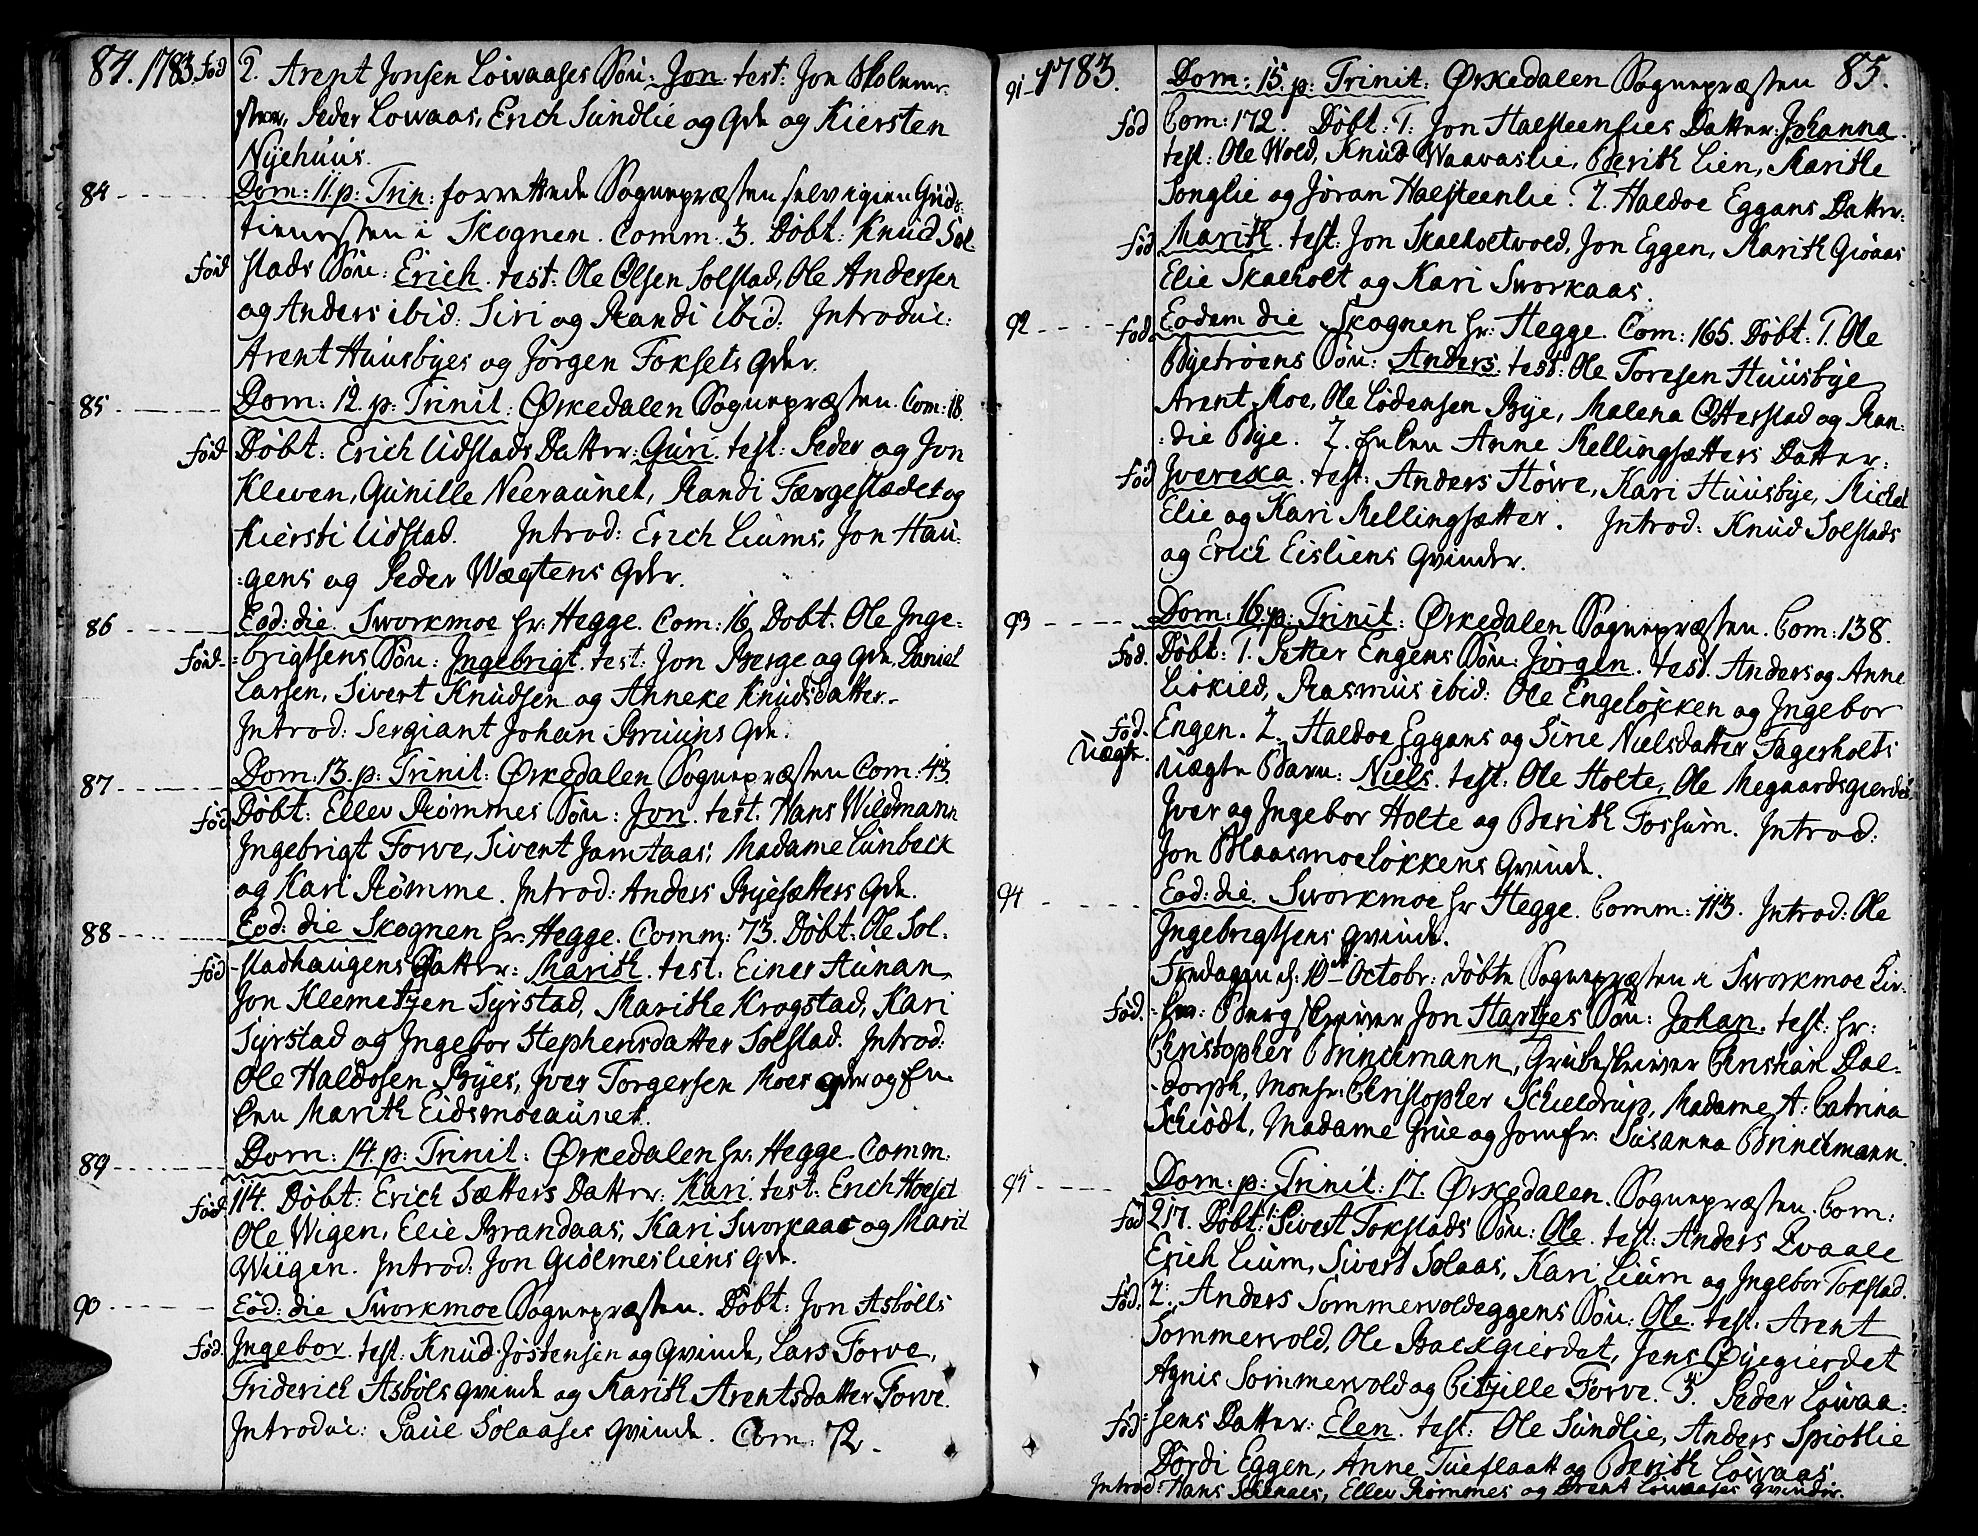 84. 1783. Fød 2. Arent Jonsen Lowaases Søn: Jon. test: Jon Skolem-
ster, Peder Lowaas, Erich Sundlie og Qde og Kiersten
Nyehuus.
84 Dom: 11. p: Trin: forrettede Sognepræsten selv igien Guds-
tienesten i Skognen. Comm: 3. Døbt: Knud Sol-
Fød stads Søn: Erich. test: Ole Olsen Solstad, Ole Andersen
og Anders ibid: Siri og Randi ibid: Introduc:
Arent Huusbyes og Jørgen Foksets Qder.
85 Dom: 12. p: Trinit: Ørkedalen Sognepræsten. Com: 18.
Fød Døbt: Erich Udstads Datter: Guri. test: Peder og Jon
Kleven, Gunille Neeraunet, Randi Færgestædet og
Kiersti Udstad. Introd: Erich Liums, Jon Hau-
:gens og Peder Wægtens Qder.
86 Eod: die. Sworkmoe hr: Hegge. Com: 16. Døbt. Ole Inge-
Fød :brigtsens Søn: Ingebrigt. test: Jon Berge og Qde, Daniel
Larsen, Sivert Knudsen og Anneke Knudsdatter.
Introd: Sergiant Johan Bruuns Qde.
87 Dom: 13. p: Trinit: Ørkedalen Sognepræsten Com: 43.
Fød Døbt: Ellev Rømmes Søn: Jon. test. Hans Wildmann
Ingebrigt Forve, Sivert Jamtaas, Madame Lunbeck
og Kari Rømme. Introd: Anders Byesætters Qde.
88 Eod: die Skognen hr: Hegge. Comm: 73. Døbt: Ole Sol-
Fød -stadhaugens Datter: Marith. test: Einer Aunan
Jon Klemetzen Syrstad, Marithe Krogstad, Kari
Syrstad og Ingebor Stephensdatter Solstad. Introd:
Ole Haldosen Byes, Iver Torgersen Moes Qder og En-
ken Marith Eidsmoeaunet.
89 Dom: 14. p: Trinit: Ørkedalen hr: Hegge. Comm:
Fød. 114. Døbt: Erich Sætters Datter: Kari. test: Erich Hoeset
Ole Wigen, Elie Brandaas, Kari Sworkaas og Marit
Wiigen. Introd: Jon Giølmesliens Qde.
90 Eod: die Sworkmoe Sognepræsten. Døbt: Jon Asbølls
Fød. Ingebor. test: Knud Jøstensen og Qvinde, Lars Forve,
Friderich Asbøls Qvinde og Marith Arentsdatter Forve.
Introduc: Paul Solaases Qvinde. Com: 72.
91 1783. Dom: 15. p: Trinit: Ørkedalen Sognepræsten 85.
Fød Com: 172. Døbt: 1: Jon Halsteenlies Datter: Johanna.
test: Ole Wold, Knud Waavaslie, Berith Lien, Marithe
Songlie og Jøran Halsteenlie. 2. Haldoe Eggans Datter:
Fød Marith. test: Jon Skaeholtwold, Jon Eggen, Marith Giøaas
Elie Skaeholt og Kari Sworkaas.
92 Fød. Eodem die Skognen hr: Hegge. Com: 165. Døbt: 1. Ole
Byetrøens Søn: Anders. test: Ole Toresen Huusbye
Arent Moe, Ole Lodensen Bye, Malena Østerstad og Ran-
:die Bye. 2. Enken Anne Rellingsætters Datter:
Fød Ivereka. test: Anders Høwe, Kari Huusbye, Michel
Elie og Kari Rellingsætter. Introd: Knud Solstads
og Erich Eisliens Qvinder.
93 Dom: 16. p: Trinit: Ørkedalen Sognepræsten. Com: 138.
Fød. Døbt: 1. Petter Engens Søn: Jørgen. test. Anders og Anne
Liøkild, Rasmus ibid: Ole Engeløkken og Ingebor
Fød. Engen. 2. Haldoe Eggans og Sirie Nielsdatter Fagerholts
Uægte. Uægte Barn: Niels. test: Ole Holte, Ole Megaardsgierdet
Iver og Ingebor Holte og Berith Fossum. Introd:
Jon Blaasmoeløkkens Qvinde.
94 Eod: die. Sworkmoe hr Hegge. Comm: 113. Introd: Ole
Ingebrigtsens Qvinde.
Fredagen d: 10de Octobr: døbte Sognepræsten i Sworkmoe Kir-
Fød. -ken: Bergskriver Jon Hartzes Søn: Johan. test: hr:
Christopher Brinchmann, Grubeskriver Christian Dal-
-dorph, Monsr: Christopher Schieldrup, Madame A: Catrina
Schiødt, Madame Grue og Jomfr: Susanna Brinchmann.
95 Dom: p: Trinit: 17. Ørkedalen. Sognepræsten. Com:
Fød 217. Døbt: 1. Sivert Tokstads Søn: Ole. test: Anders Qvaale
Erich Lium, Sivert Solaas, Kari Lium og Ingebor Tokstad.
Fød. 2. Anders Sommervoldeggens Søn: Ole. test: Arent
Sommervold, Ole Backgierdet, Jens Øyegierdet
Agnis Sommervold og Citzille Forve. 3. Peder Lowaa-
Fød :sens Datter: Elen. test: Ole Sundlie, Anders Spiøtlie
Dordi Eggen, Anne Tueflaatt og Berith Lowaas.
Introd: Hans Skenaes, Ellev Rømmes og Arent Lowaases Qvinder.